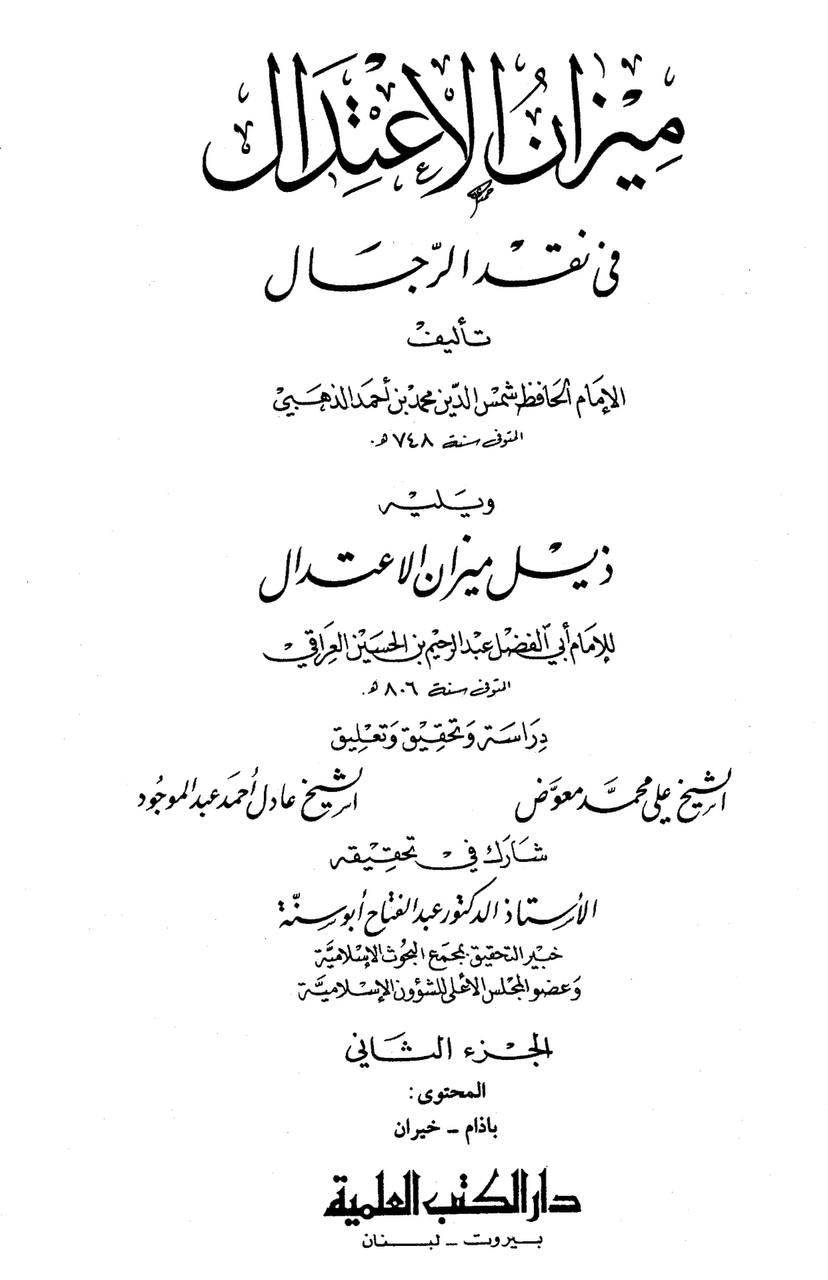 ميزان الاعتدال
في نقد الرجال
تأليف
الإمام الحافظ شمس الدين محمد بن أحمد الذهبي
المتوفى سنة ٧٤٨ هـ.
ويليه
ذيل ميزان الاعتدال
للإمام أبي الفضل عبد الرحيم بن الحسين العراقي
المتوفى سنة ٨٠٦ هـ.
دراسة وتحقيق وتعليق
الشيخ علي محمد معوض الشيخ عادل أحمد عبد الموجود
شارك في تحقيقه
الأستاذ الدكتور عبد الفتاح أبو سنة
خبير التحقيق بمجمع البحوث الإسلامية
وعضو المجلس الأعلى للشؤون الإسلامية
الجزء الثاني
المحتوى:
باذام - خيران
دار الكتب العلمية
بيروت - لبنان